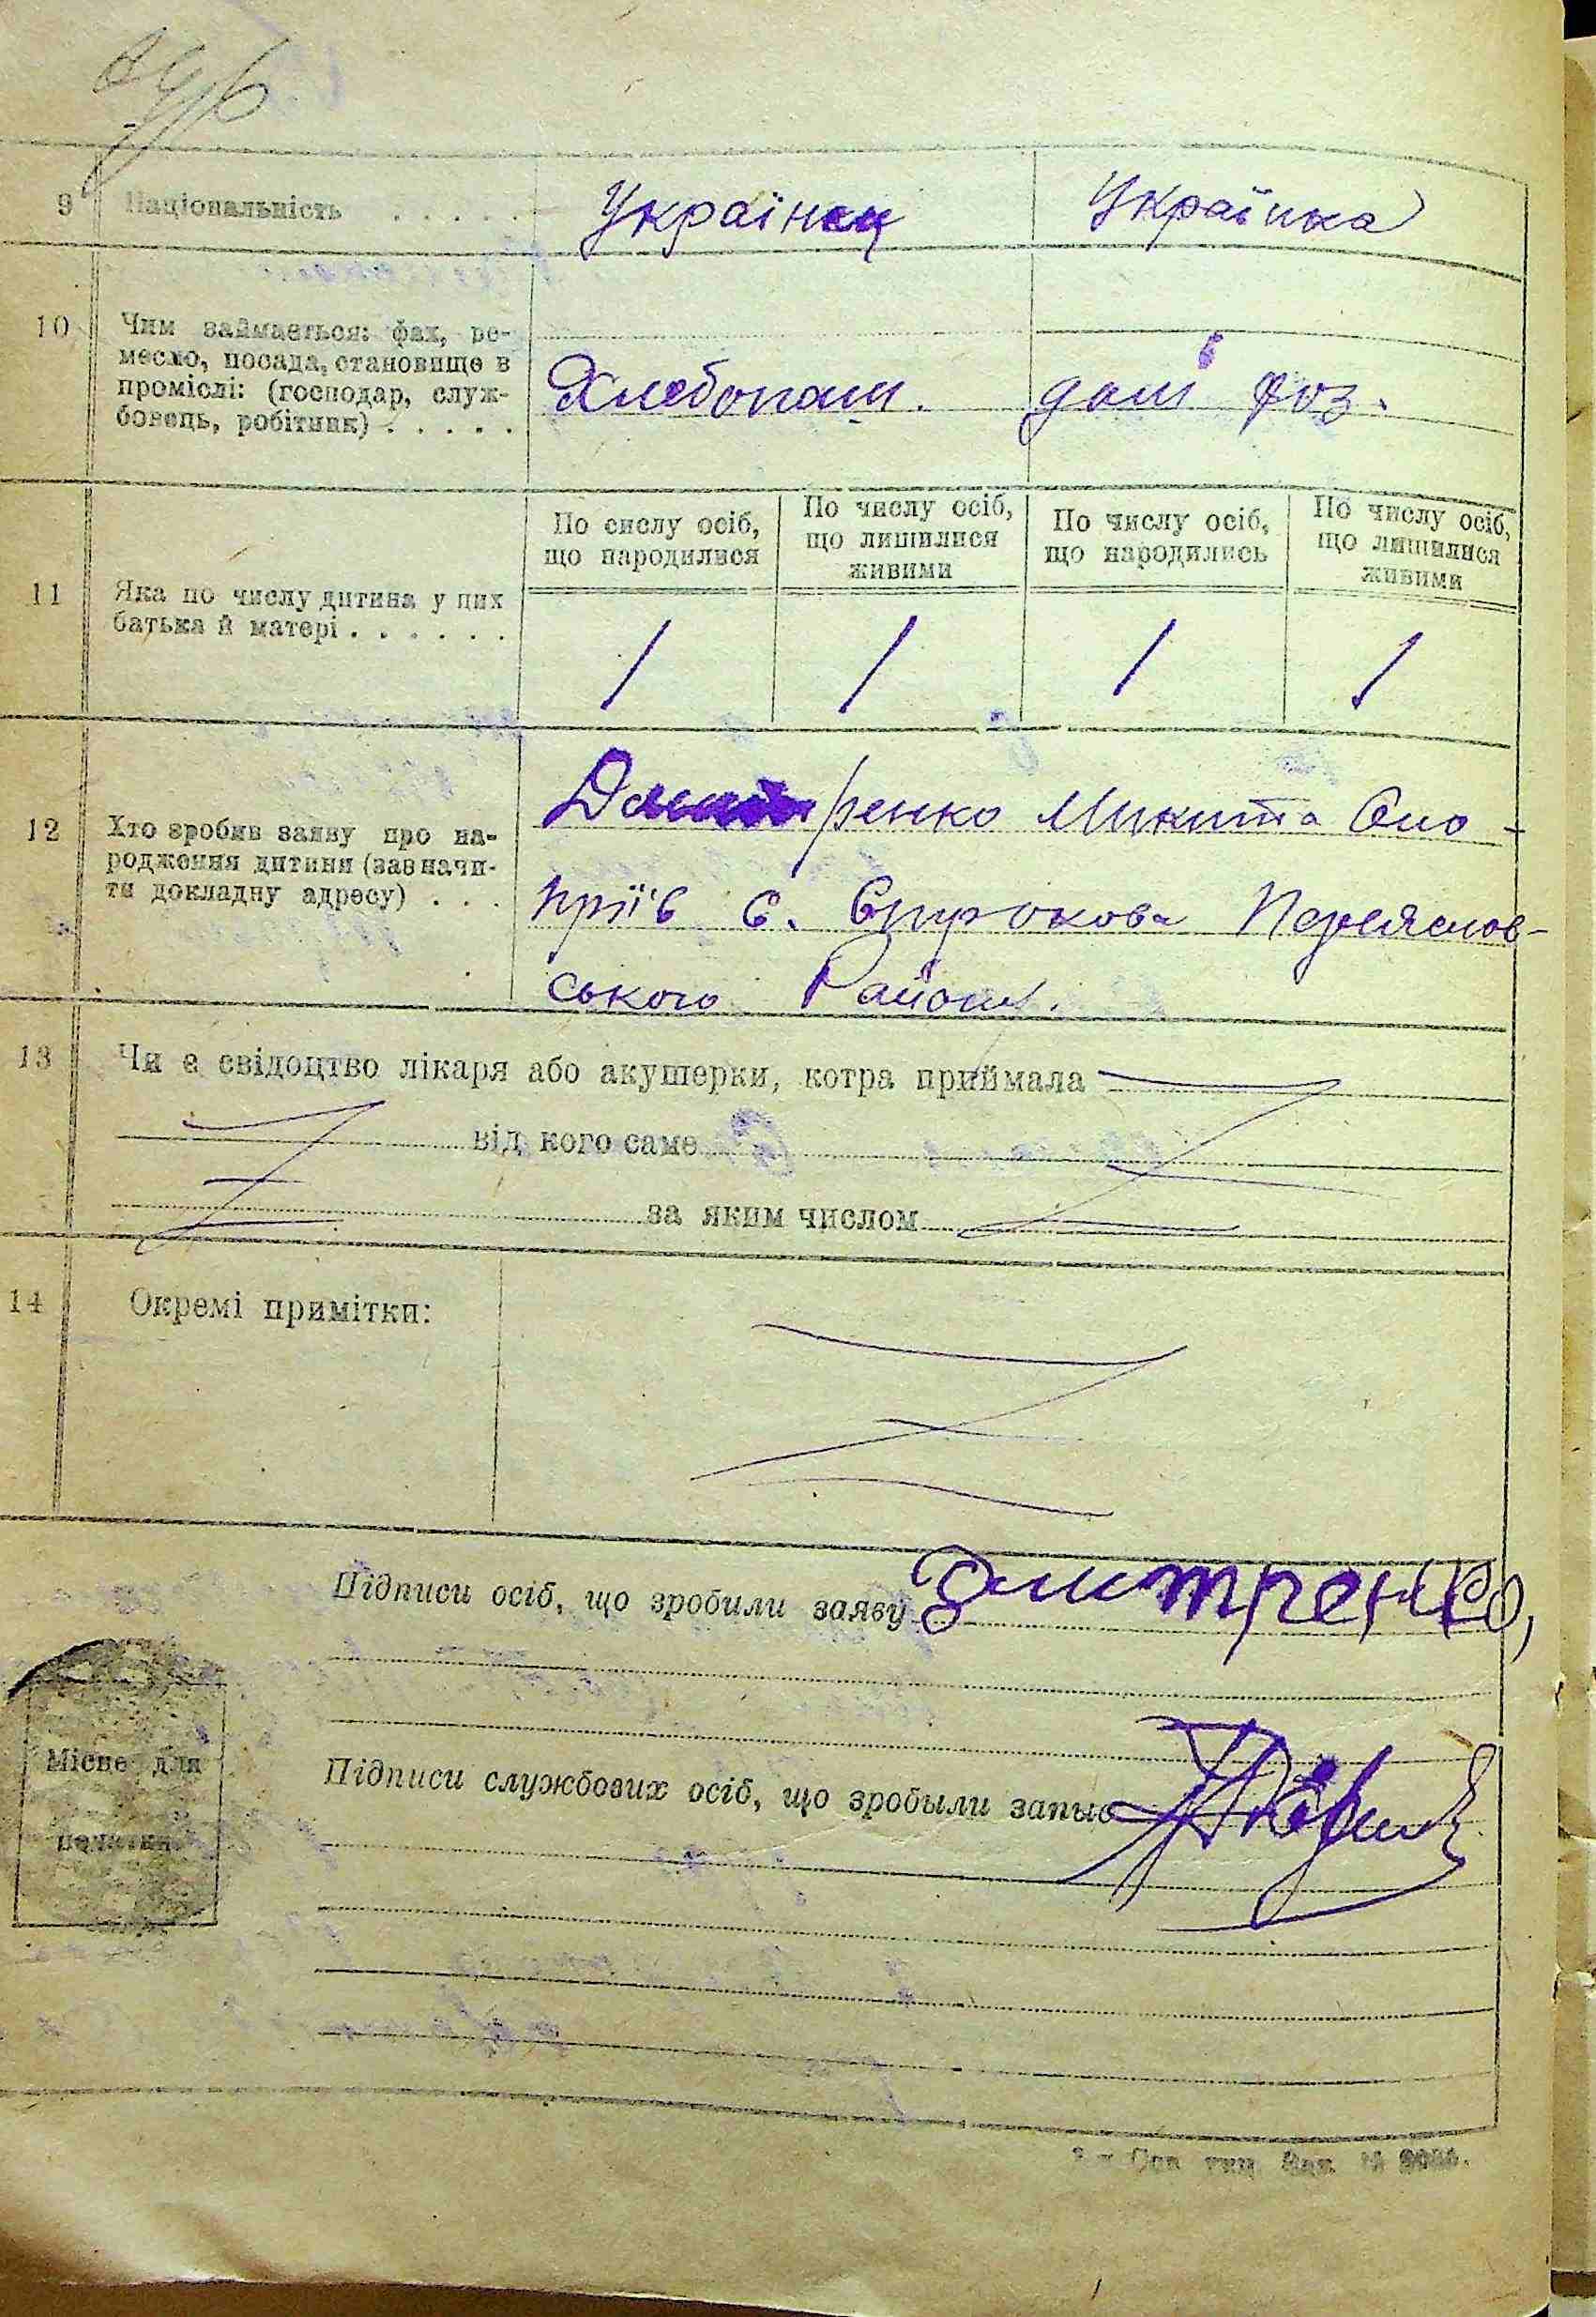 9 Національність . . . . . Українец Українка
10 Чим займається: фах, ре-
месло, посада, становище в
проміслі: (господар, служ-
бовець, робітник) . . . . .
Хлебопаш. дом хоз.
11 Яка по числу дитина у цих
батька й матері . . . . . .
По сислу осіб,
що народилися
По числу осіб,
що лишилися
живими
По числу осіб,
що народились
По числу осіб,
що лишилися
живими
1 1 1 1
12 Хто зробив заяву про на-
родження дитини (зазначи-
ти докладну адресу) . . .
ренко Микита
с. Переяслов-
ського Району.
13 Чи є свідоцтво лікаря або акушерки, котра приймала
від кого саме
за яким числом
14 Окремі примітки:
Підписи осіб, що зробили заяву Дмитренко,
Місце для
печатки
Підписи службових осіб, що зробыли запыс